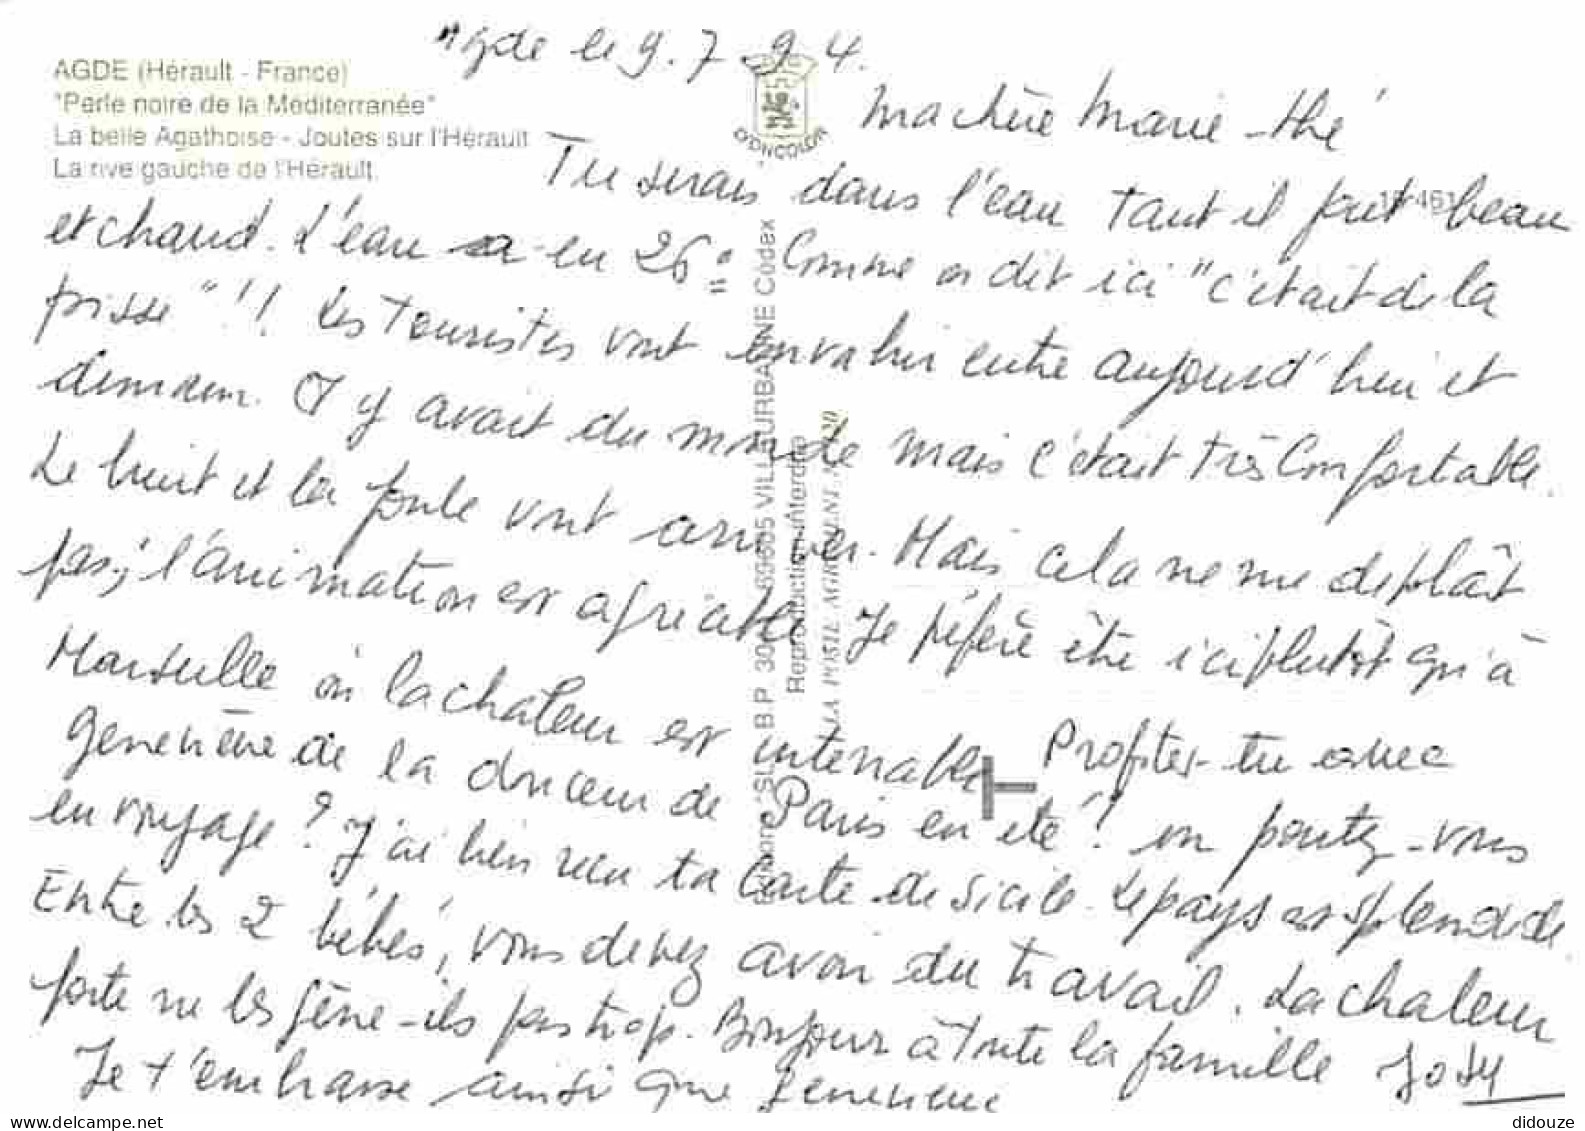 Agde le 9.7.94.
AGDE (Hérault - France)
"Perle noire de la Méditerranée"
La belle Agathoise - Joutes sur l'Hérault
La rive gauche de l'Hérault.
Ma chère Marie-thé
Tu serais dans l'eau tant il fait beau
et chaud. L'eau en 26° Comme on dit ici "c'était de la
pisse"!! Les touristes vont envahir entre aujourd'hui et
demain. Il y avait du monde mais c'était très confortable.
Le bruit et la foule vont arriver. Mais cela ne me déplaît
pas; l'animation est agréable. Je préfère être ici plutôt qu'à
Marseille où la chaleur est intenable. Profites-tu avec
Geneviève de la douceur de Paris en été! ou partez-vous
en voyage? J'ai bien reçu ta carte de Sicile. Le pays est splendide
Entre les 2 bébés, vous devez avoir du travail. La chaleur
forte ne les gêne-ils pas trop. Bonjour à toute la famille Josy
Je t'embrasse ainsi que Geneviève
COMBIER
Editions "SL" - B.P. 69605 VILLEURBANNE Cédex
Reproduction interdite
LA POSTE AGRÉMENT N° 20
delcampe.net
didouze